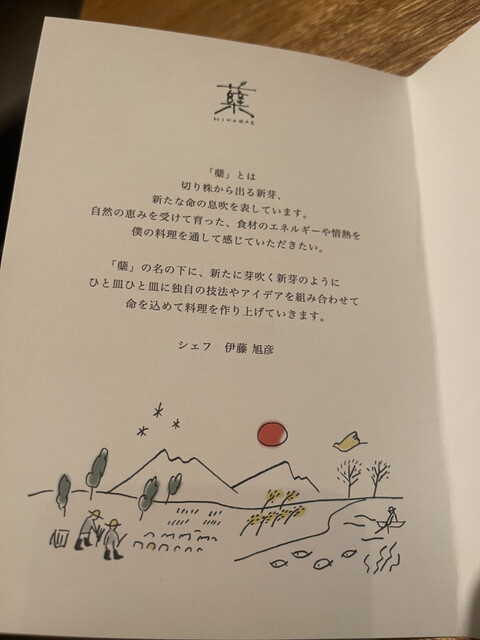 蘖
HIKOBAE
「蘖」とは
切り株から出る新芽、
新たな命の息吹を表しています。
自然の恵みを受けて育った、食材のエネルギーや情熱を
僕の料理を通して感じていただきたい。
「蘖」の名の下に、新たに芽吹く新芽のように
ひと皿ひと皿に独自の技法やアイデアを組み合わせて
命を込めて料理を作り上げていきます。
シェフ　伊藤 旭彦